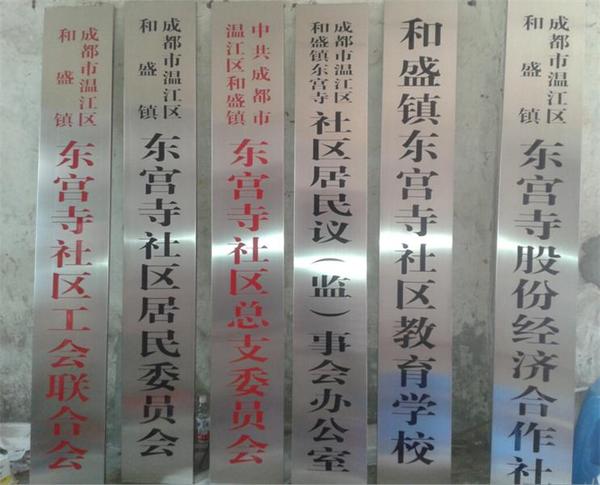 成都市温江区
和盛镇
东宫寺社区工会联合会
成都市温江区
和盛镇
东宫寺社区居民委员会
中共成都市
温江区和盛镇
东宫寺社区总支委员会
成都市温江区
和盛镇东宫寺
社区居民议(监)事会办公室
和盛镇东宫寺社区教育学校
成都市温江区
和盛镇
东宫寺股份经济合作社